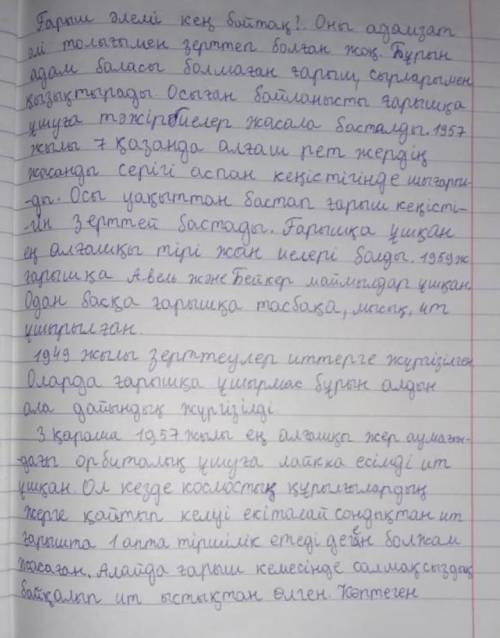 Ғарыш әлемі кең байтақ!. Оны адамзат
әлі толығымен зерттеп болған жоқ. Бұрын
адам баласы болмаған ғарыш, сырларымен
қызықтырады. Осыған байланысты ғарышқа
ұшуға тәжірбиелер жасала басталды. 1957
жылы 7 қазанда алғаш рет жердің
жасанды серігі аспан кеңістігінде шығары-
-ды. Осы уақыттан бастап ғарыш кеңісті-
-гін зерттей бастады. Ғарышқа ұшқан
ең алғашқы тірі жан иелері болды. 1959ж
ғарышқа Авель және Бейкер маймылдар ұшқан.
Одан басқа ғарышқа тасбақа, мысық, ит
ұшырылған.
1949 жылы зерттеулер иттерге жүргізілген
Оларда ғарышқа ұшырмас бұрын алдын
ала дайындық жүргізілді
3 қараша 1957 жылы ең алғашқы жер аумағын-
-дағы орбиталық ұшуға лайкка есімді ит
ұшқан. Ол кезде космостық құрылғылардың
жерге қайтып келуі екіталай сондықтан ит
ғарышта 1 апта тіршілік етеді деген болжам
жасаған. Алайда ғарыш кемесінде салмақсыздық
байқалып ит ыстықтан өлген. Көптеген